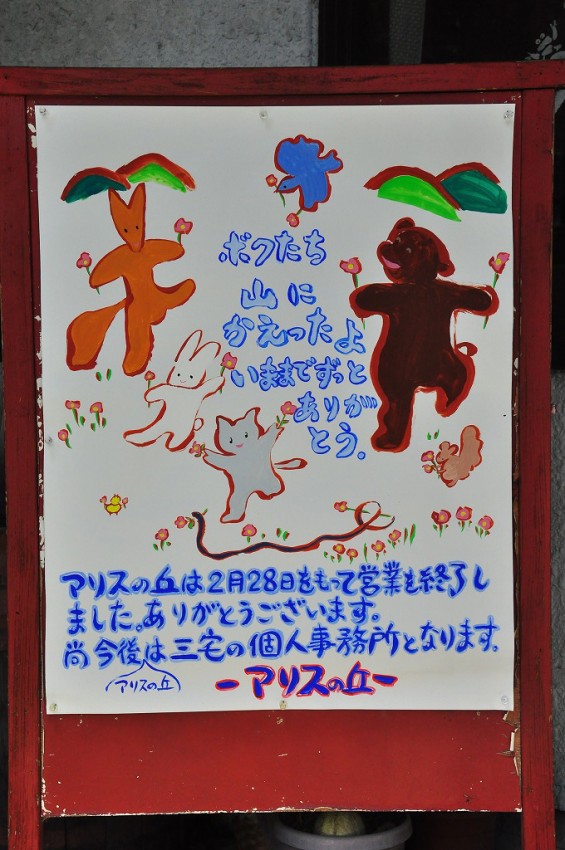 ボクたち
山に
かえったよ
いままでずっと
ありが
とう。
アリスの丘は2月28日をもって営業を終了し
ました。ありがとうございます。
尚今後は三宅の個人事務所となります。
(アリスの丘)
-アリスの丘-